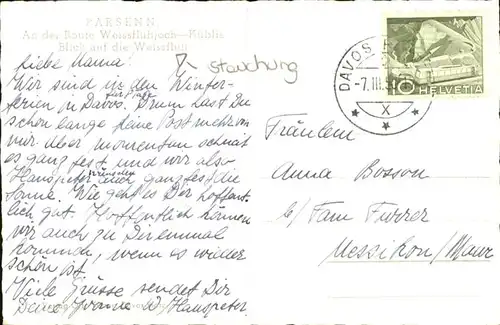 PARSENN
An der Route Weissfluhjoch-Küblis
Blick auf die Weissfluh
stauchung
Liebe Nanna!
Wir sind in den Winter-
ferien in Davos. Drum hast Du
schon lange keine Post mehr von
mir. Aber momentan schneit
es ganz fest und wir also
Hanspeter auch ganz fest die
wünschen
Sonne. Wie geht es Dir hoffent-
lich gut. Hoffentlich können
wir auch zu Dir einmal
kommen, wenn es wieder
schön ist!
Viele Grüsse sendet Dir
Deine Yvonne u. Hanspeter
DAVOS
-7.III.
X
10
HELVETIA
Fräulein
Anna Bosson
c/o Fam. Furrer
Uessikon/Maur